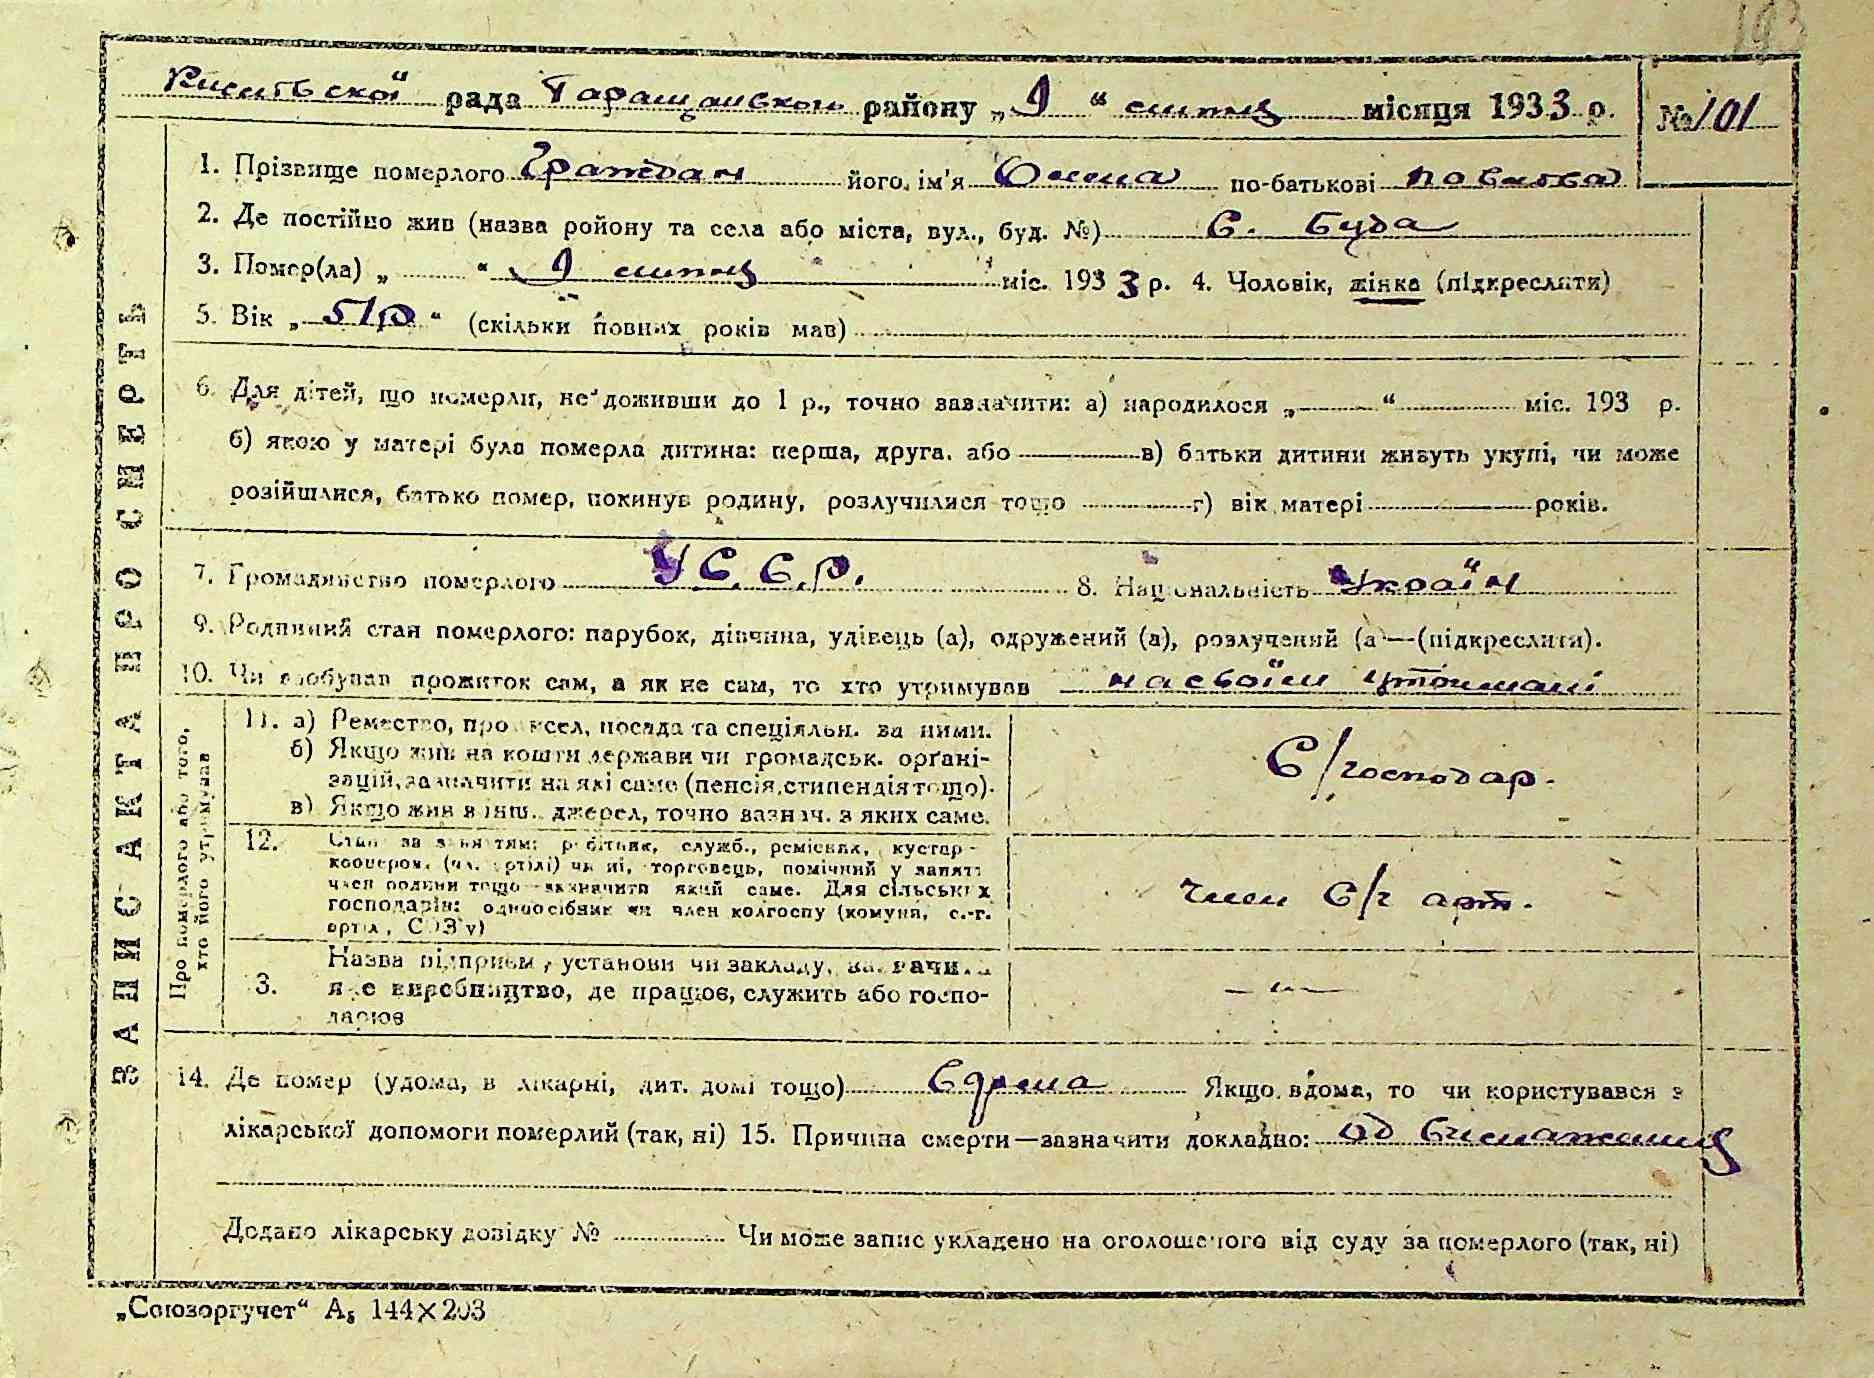 рада Таращанського району „ 9 “ липня місяця 1933 р. № 101
1. Прізвище померлого Граждан його ім'я Олена по-батькові
2. Де постійно жив (назва ройону та села або міста, вул., буд. №) с. Буда
3. Помер(ла) „ “ 9 липня міс. 1933 р. 4. Чоловік, жінка (підкреслити)
5. Вік „ 51 р “ (скільки повних років мав)
6. Для дітей, що померли, не доживши до 1 р., точно зазначити: а) народилося „ “ міс. 193 р.
б) якою у матері була померла дитина: перша, друга, або в) батьки дитини живуть укупі, чи може
розійшлися, батько помер, покинув родину, розлучилися тощо г) вік матері років.
7. Громадянство померлого УС.С.Р. 8. Національність Україн
9. Родинний стан померлого: парубок, дівчина, удівець (а), одружений (а), розлучений (а —(підкреслити).
10. Чи здобував прожиток сам, а як не сам, то хто утримував на своїм утриманні
ЗАПИС АКТА ПРО СМЕРТЬ
Про померлого або того, хто його утримував
11. а) Ремество, промисел, посада та спеціяльн. за ними.
б) Якщо жив на кошти держави чи громадськ. орґані-
зацій, зазначити на які саме (пенсія, стипендія тощо).
в) Якщо жив з інш. джерел, точно зазнач. з яких саме.
С/господар.
12. Стан за заняттям: робітник, служб., ремісник, кустар-
кооперов. (чл. артілі) чи ні, торговець, помічний у занятті
член родини тощо зазначити який саме. Для сільських
господарів: одноосібник чи член колгоспу (комуни, с.-г.
артіл., СОЗ'у)
член С/г арт.
3. Назва підприєм., установи чи закладу, зазначи.
яке виробництво, де працює, служить або госпо-
дарює
— „ —
14. Де помер (удома, в лікарні, дит. домі тощо) Якщо вдома, то чи користувався з
лікарської допомоги померлий (так, ні) 15. Причина смерти—зазначити докладно: од виснаження
Додано лікарську довідку № Чи може запис укладено на оголошеного від суду за померлого (так, ні)
„Союзоргучет“ А5 144×203